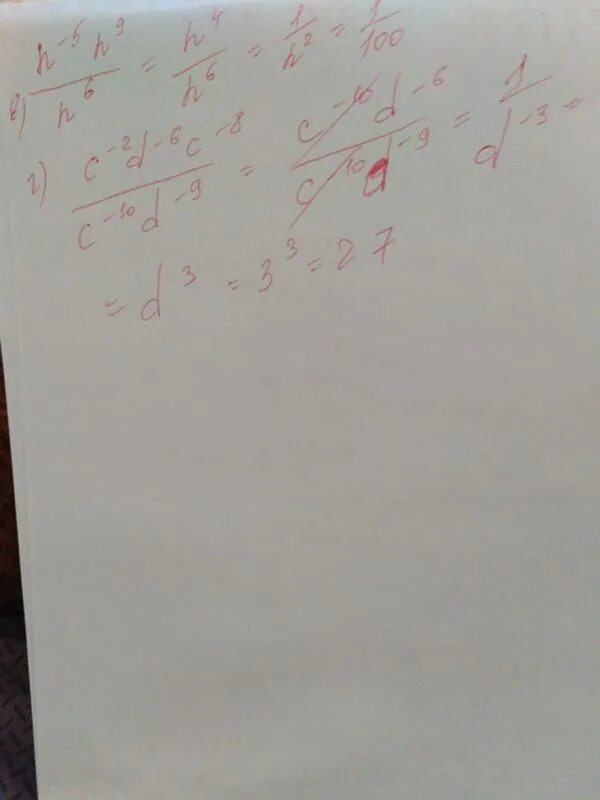 в) n⁻⁵ n⁹ / n⁶ = n⁴ / n⁶ = 1 / n² = 1 / 100
г) c⁻² d⁻⁶ c⁻⁸ / c⁻¹⁰ d⁻⁹ = c⁻¹⁰ d⁻⁶ / c⁻¹⁰ d⁻⁹ = 1 / d⁻³ =
= d³ = 3³ = 27